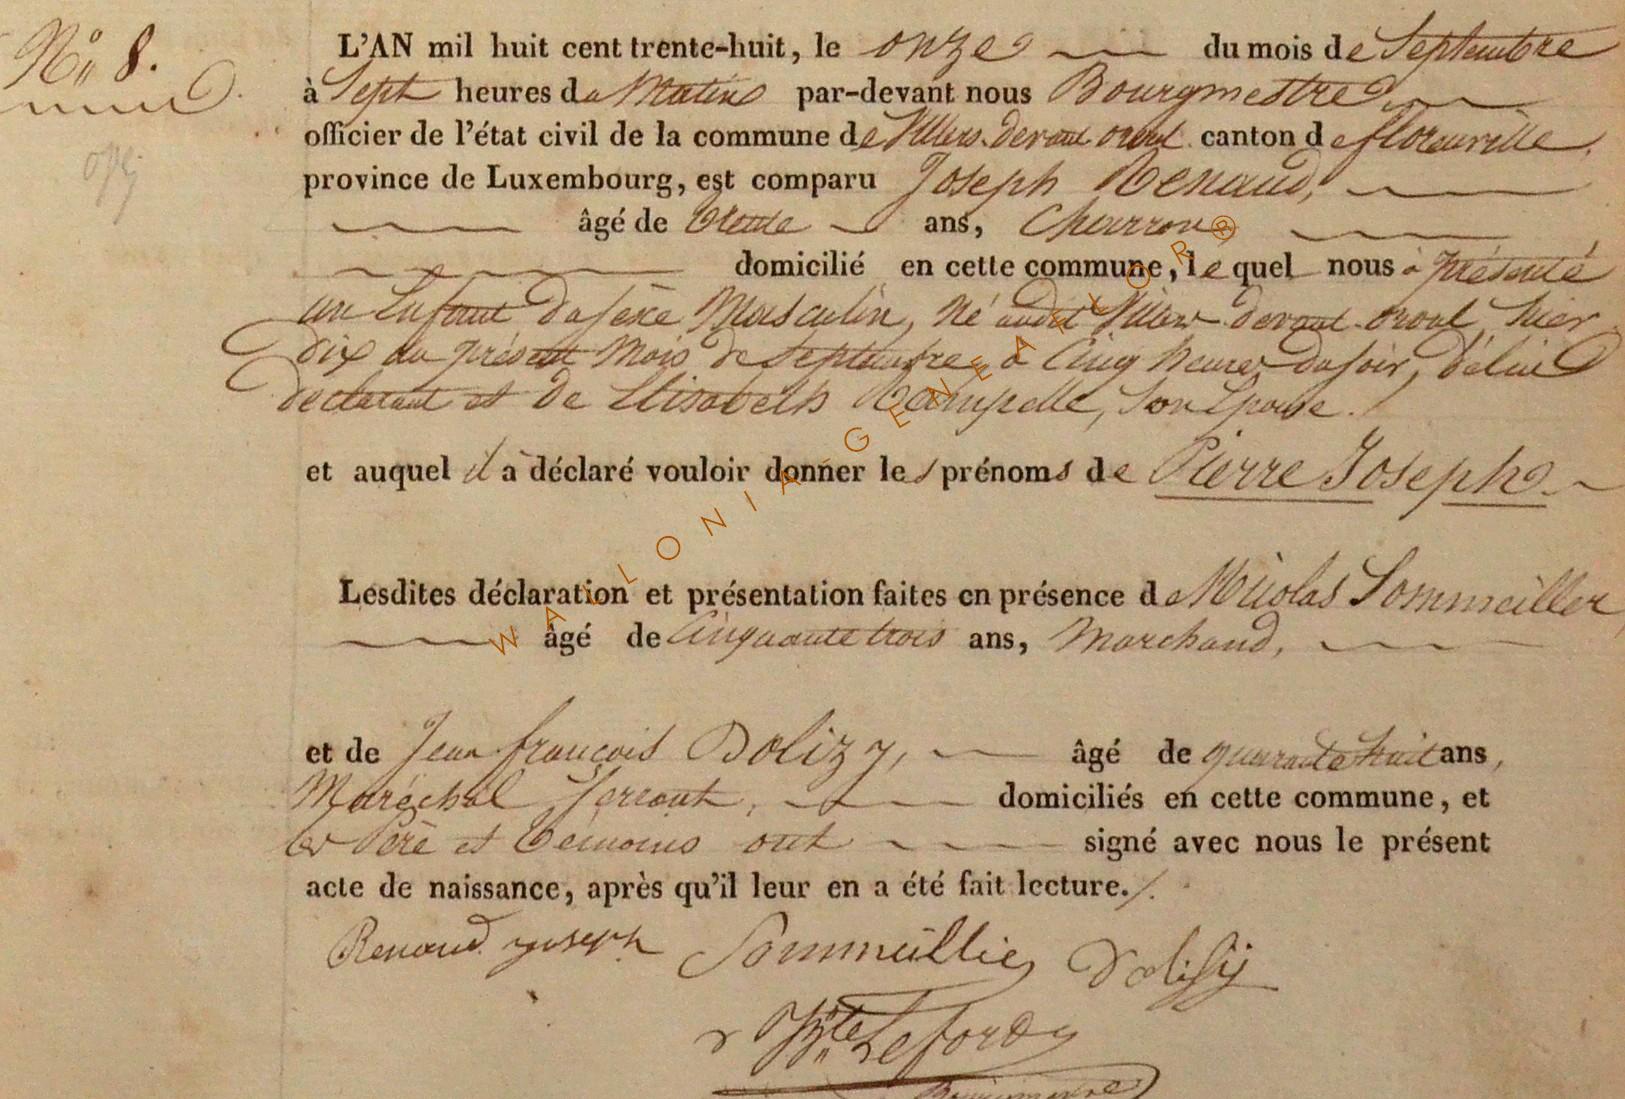 N° 8.
L'AN mil huit cent trente-huit, le onze du mois de Septembre
à Sept heures du Matin par-devant nous Bourgmestre
officier de l'état civil de la commune de Villers-devant-orval canton de florenville,
province de Luxembourg, est comparu Joseph Renaud,
âgé de trente ans, Charron
domicilié en cette commune, lequel nous à présenté
un Enfant du sexe Masculin, né audit Villers-devant-orval, hier
dix du présent mois de Septembre à Cinq heures du soir, de lui
déclarant et de Elisabeth, son Epouse.
et auquel il a déclaré vouloir donner les prénoms de Pierre Joseph
Lesdites déclaration et présentation faites en présence de Nicolas Sommeiller,
âgé de Cinquante trois ans, Marchand,
et de Jean françois Dolizy, âgé de quarante huit ans,
Maréchal ferrant, domiciliés en cette commune, et
les Père et témoins ont signé avec nous le présent
acte de naissance, après qu'il leur en a été fait lecture./.
Renaud joseph Sommeillier Dolisy
Lefordy
Bourgmestre
WALLONIA GENEALOR®